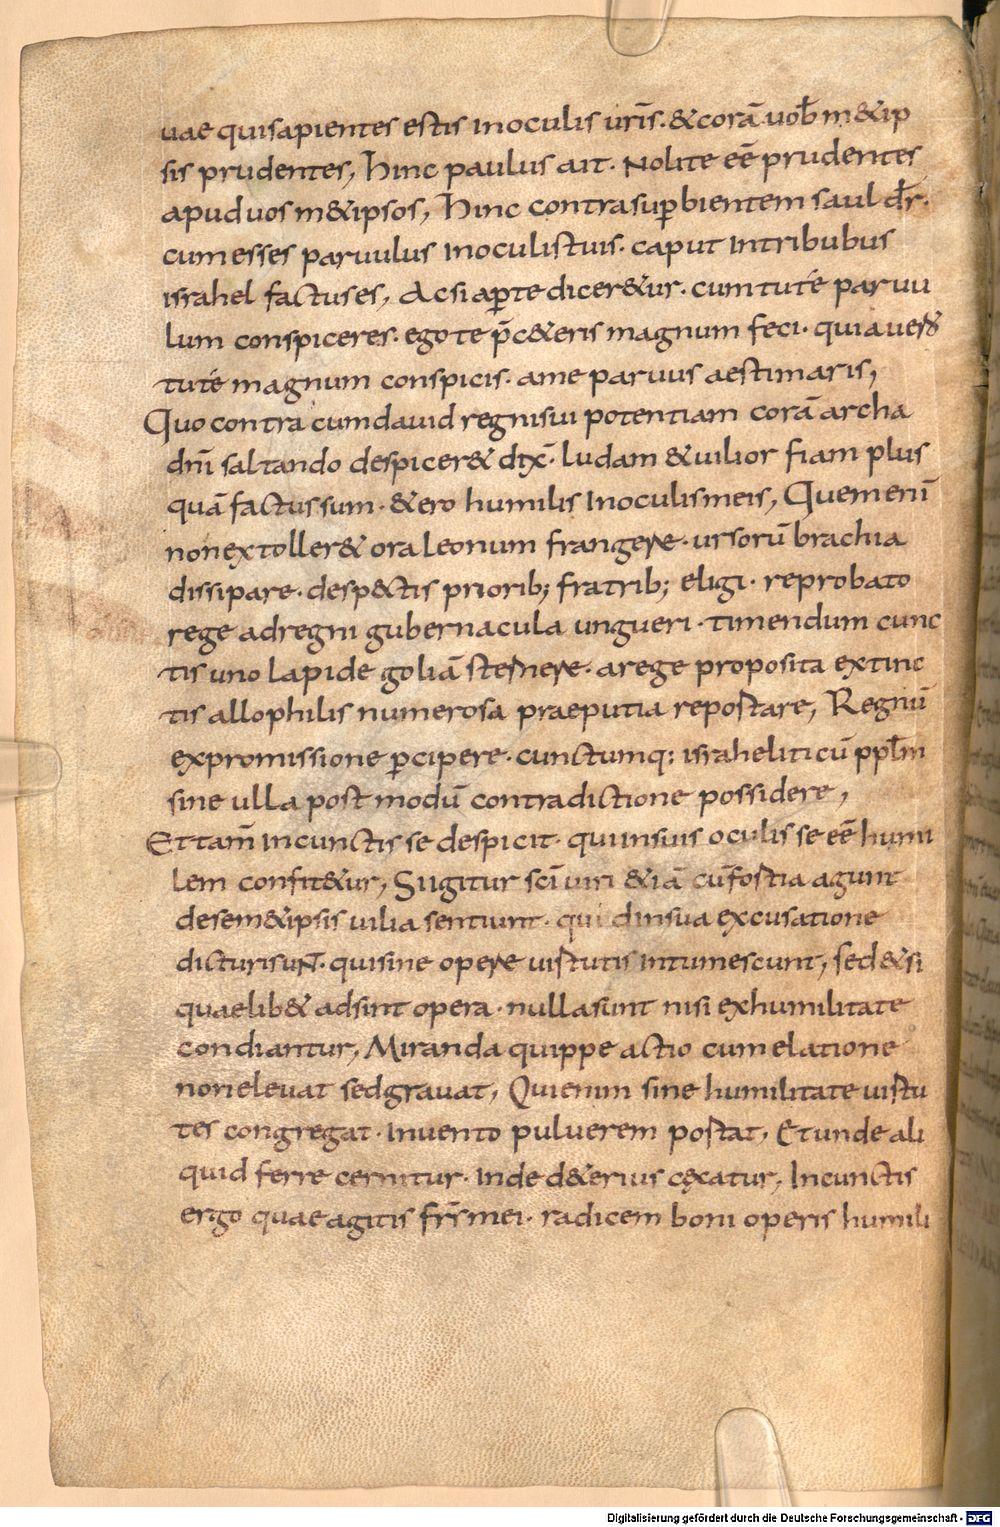 uae qui sapientes estis in oculis ur̄is. & corā uob̄ m&ip
sis prudentes, hinc paulus ait. Nolite eē prudentes
apud uos m&ipsos, hinc contra sup̄bientem saul dr̄.
cum esses paruulus in oculis tuis. caput in tribubus
israhel factus es, Ac si ap̄te dicer&ur. cum tu te paruu
lum conspiceres. ego te p̄ c&eris magnum feci. quia uero
tu te magnum conspicis. a me paruus aestimaris,
Quo contra cum dauid regni sui potentiam corā archa
dn̄i saltando despicer& dix̄. ludam & uilior fiam plus
quā factus sum. & ero humilis in oculis meis, Quem eni̅
non extoller& ora leonum frangere. ursorū brachia
dissipare. desp&ctis priorib; fratrib; eligi. reprobato
rege ad regni gubernacula ungueri. timendum cunc
tis uno lapide goliā sternere. a rege proposita extinc
tis allophilis numerosa praeputia reportare, Regnū
ex promissione p̄cipere. cunctumq: israheliticū ppl̄m
sine ulla postmodū contradictione possidere,
Et tam̄ in cunctis se despicit. qui in suis oculis se eē humi
lem confit&ur, Si igitur sc̄i uiri &iā cū fortia agunt
de sem&ipsis uilia sentiunt. qui d in sua excusatione
dicturi suNt. qui sine opere uirtutis intumescunt, sed & si
quaelib& adsint opera. nulla sunt nisi ex humilitate
condiantur, Miranda quippe actio cum elatione
non eleuat sed grauat, Qui enim sine humilitate uirtu
tes congregat. In uento puluerem portat, Et unde ali
quid ferre cernitur. inde d&erius cęcatur, In cunctis
ergo quae agitis fr̄s mei. radicem boni operis humili
Digitalisierung gefördert durch die Deutsche Forschungsgemeinschaft - DFG